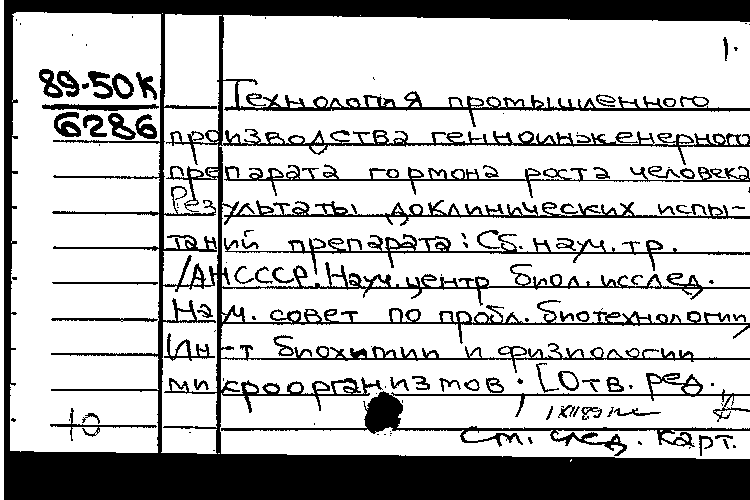 1.
89-50К
6286
Технология промышленного
производства генноинженерного
препарата гормона роста человека
Результаты доклинических испы-
таний препарата: Сб. науч. тр.
/АНСССР. Науч. центр биол. исслед.
Науч. совет по пробл. биотехнологии,
Ин-т биохимии и физиологии
микроорганизмов; [Отв. ред.
10
См. след. карт.